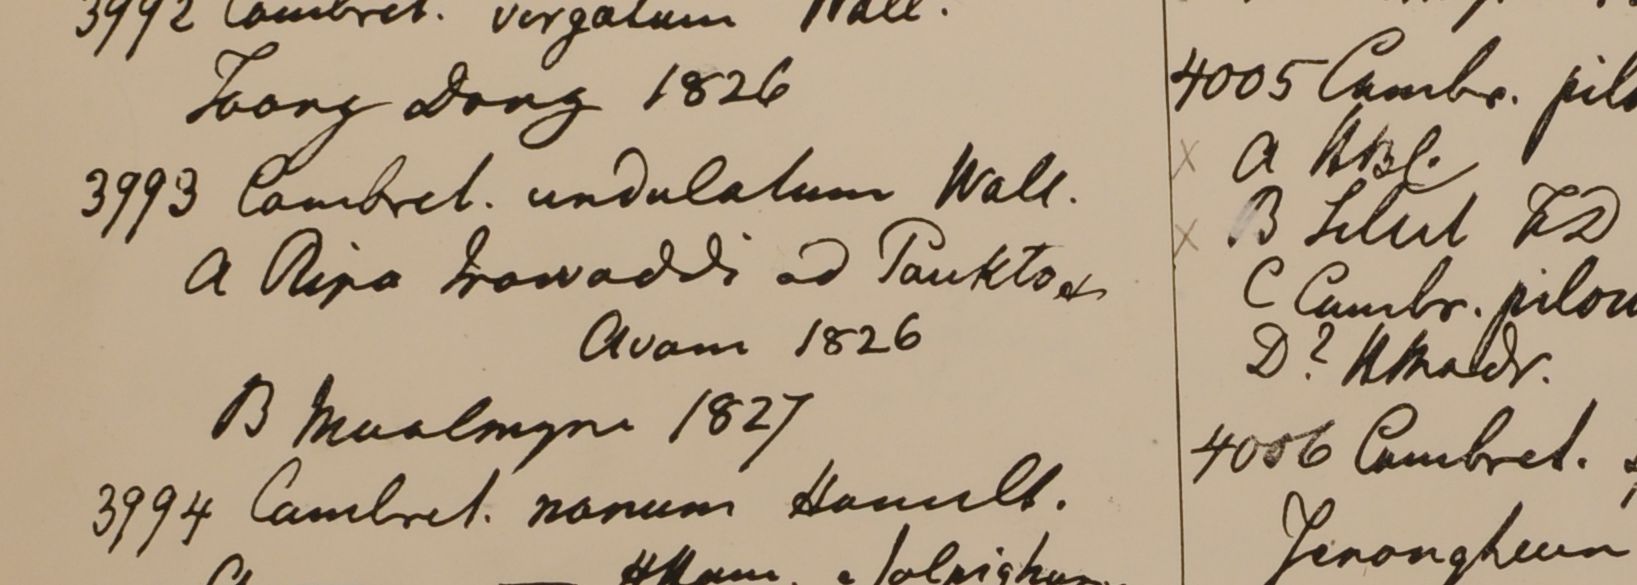 3992 Combret. virgatum Wall.
Toong Dong 1826
3993 Combret. undulatum Wall.
A Ripa Irawaddi ad Pauktox
Avam 1826
B Moalmyne 1827
3994 Combret. nanum Hamilt.
HHam.
4005 Combr. pilo
A HBC.
B Silhet FD
C Combr. pilos
D? HMadr.
4006 Combret.
Jenongheun